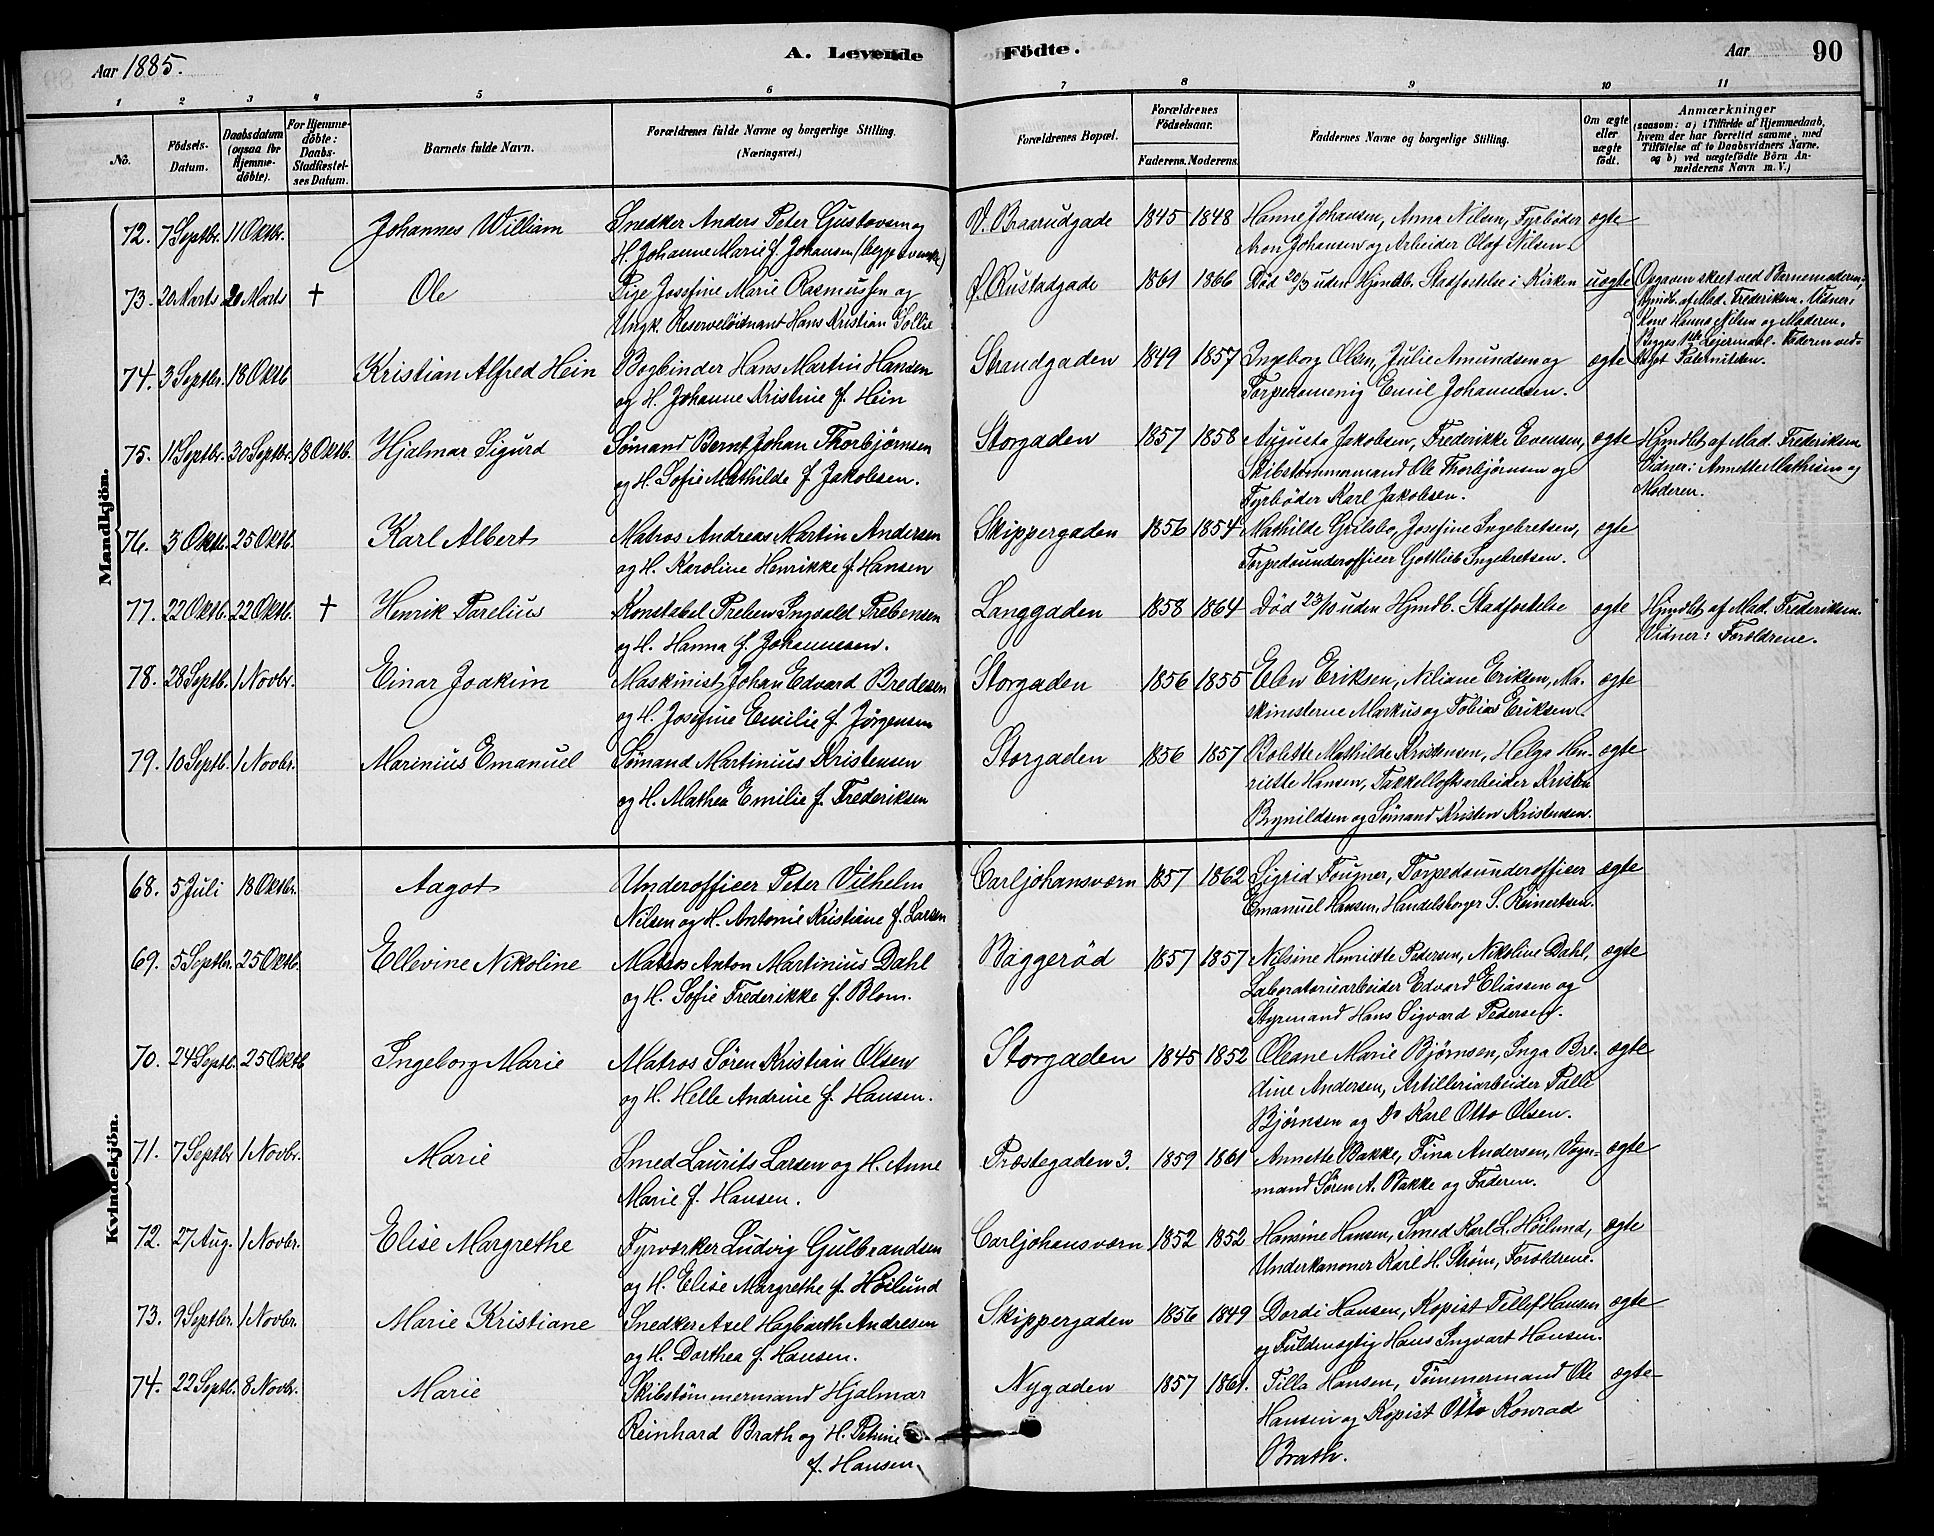 Aar 1885.
A. Levende Födte.
Aar
90
1 2 3 4 5 6 7 8 9 10 11
No.
Födsels-Datum.
Daabsdatum (ogsaa for Hjemme-döbte).
For Hjemme-döbte: Daabs-Stadfæstel-ses Datum.
Barnets fulde Navn.
Forældrenes fulde Navne og borgerlige Stilling. (Næringsvei.)
Forældrenes Bopæl.
Forældrenes Födselsaar.
Faderens. Moderens.
Faddernes Navne og borgerlige Stilling.
Om ægte eller uægte födt.
Anmærkninger
(saasom: a) i Tilfælde af Hjemmedaab, hvem der har forrettet samme, med Tilföielse af to Daabsvidners Navne, og b) ved uægtefödte Börn An-melderens Navn m. V.)
Mandkjön.
72. 7 Septbr. 11 Oktbr. Johannes William Snedker Anders Peter Gustavsen og V. Braarudgade 1845 1848 Hanne Johansen, Anna Nilsen, Fyrbøder ægte
H. Johanne Marie f. Johansen (begge svenske) Aron Johansen og Arbeider Olaf Nilsen.
73. 20 Marts 20 Marts † Ole Pige Josefine Marie Rasmussen og Ø. Rustadgade 1861 1866 Død 20/3 uden Hjmdb. Stadfæstelse i Kirken uægte Opgaven skeet ved Barnemoderen,
Ungk. Reserveløidnant Hans Kristian Hjmdb. af Mad. Frederiksen. Vidner:
Kone Hanna Nilsen og Moderen.
Begges 1ste Leiermaal. Faderen ved-
74. 3 Septbr. 18 Oktb Kristian Alfred Hein Bogbinder Hans Martin Hansen Strandgaden 1849 1857 Ingeborg Olsen, Julie Amundsen og ægte taget Paterniteten.
og H. Johanne Kristine f. Hein Torpedomenig Emil Johannesen.
75. 11 Septbr. 30 Septbr. 18 Oktb. Hjalmar Sigurd Sømand Bernt Johan Thorbjørnsen Storgaden 1857 1858 Augusta Jakobsen, Frederikke Evensen, ægte Hjmdbt af Mad. Frederiksen
og H. Sofie Mathilde f. Jakobsen. Skibstømmermand Ole Thorbjørnsen og Vidner: Annette Mathisen og
Fyrbøder Karl Jakobsen. Moderen.
76. 3 Oktb. 25 Oktb. Karl Albert Matros Andreas Martin Andersen Skippergaden 1856 1854 Mathilde Grilsbo, Josefine Ingebretsen, ægte
og H. Karoline Henrikke f. Hansen Torpedounderofficer Gottlieb Ingebretsen.
77. 22 Oktb. 22 Oktb. † Henrik Parelius Konstabel Preben Ingvald Prebensen Langgaden 1858 1864 Død 23/10 uden Hjmdb. Stadfæstelse ægte Hjmdbt af Mad. Frederiksen.
og H. Hanna f. Johannesen. Vidner: Forældrene.
78. 28 Septb. 1 Novbr. Einar Joakim Maskinist Johan Edvard Bredesen Storgaden 1856 1855 Elen Eriksen, Niliane Eriksen, Ma- ægte
og H. Josefine Emilie f. Jørgensen skinisterne Markus og Tobias Eriksen.
79. 10 Septb. 1 Novbr. Marinius Emanuel Sømand Martinius Kristensen Storgaden 1856 1857 Bolette Mathilde Kristensen, Helga Hen- ægte
og H. Mathea Emilie f. Frederiksen riette Hansen, Takkelloftsarbeider Kristen
Brynildsen og Sømand Kristen Kristensen.
Kvindekjön.
68. 5 Juli 18 Oktbr. Aagot Underofficer Peter Vilhelm Carljohansværn 1857 1862 Sigrid Fougner, Torpedounderofficer ægte
Nilsen og H. Antonie Kristiane f. Larsen Emanuel Hansen, Handelsborger S. Reinertsen.
69. 5 Septbr. 25 Oktb. Ellevine Nikoline Matros Anton Martinius Dahl Baggerød 1857 1857 Nilsine Henriette Pedersen, Nikoline Dahl, ægte
og H. Sofie Frederikke f. Blom. Laboratoriearbeider Edvard Eliassen og
Styrmand Hans Sigvard Pedersen.
70. 24 Septb. 25 Oktb Ingeborg Marie Matros Søren Kristian Olsen Storgaden 1845 1852 Oleane Marie Bjørnsen, Inga Bre- ægte
og H. Helle Andrine f. Hansen. dine Andersen, Artilleriarbeider Palle
Bjørnsen og Do Karl Otto Olsen.
71. 7 Septbr 1 Novbr. Marie Smed Laurits Larsen og H. Anne Præstegaden 3. 1859 1861 Annette Bakke, Fina Andersen, Vogn- ægte
Marie f. Hansen. mand Søren A. Bakke og Faderen.
72. 27 Aug. 1 Novbr. Elise Margrethe Fyrværker Ludvig Gulbrandsen Carljohansværn 1852 1852 Hansine Hansen, Smed Karl L. Høilund, ægte
og H. Elise Margrethe f. Høilund Underkanoner Karl H. Strøm, Forældrene.
73. 9 Septbr. 1 Novbr. Marie Kristiane Snedker Axel Hagbarth Andresen Skippergaden 1856 1849 Dordi Hansen, Kopist Tellef Hansen ægte
og H. Dorthea f. Hansen. og Fuldmægtig Hans Ingvart Hansen.
74. 22 Septb. 8 Novbr. Marie Skibstømmermand Hjalmar Nygaden 1857 1861. Tilla Hansen, Tømmermand Ole ægte
Reinhard Brath og H. Petrine Hansen og Kopist Otto Konrad
f. Hansen. Brath.